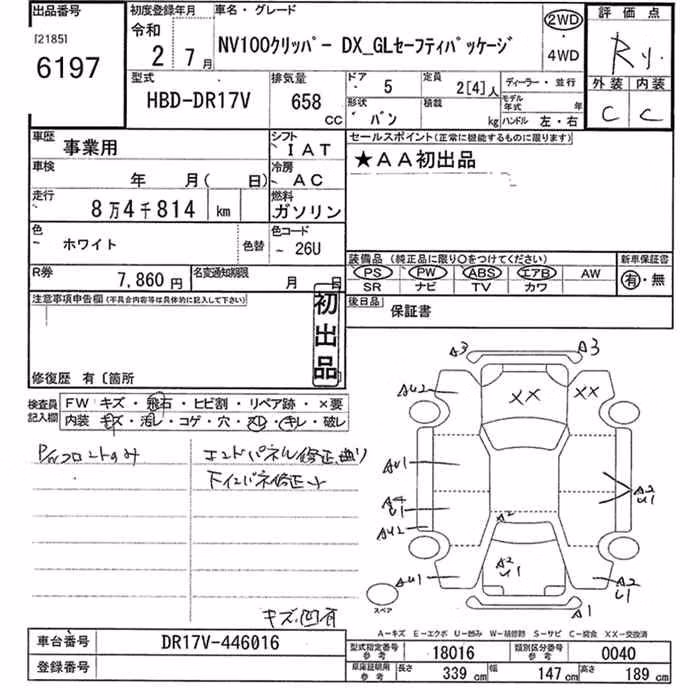 出品番号
[2185]
6197
初度登録年月
令和
2 7月
車名・グレード
NV100クリッパー DX_GLセーフティパッケージ
2WD
・
4WD
評価点
R
外装 内装
C C
型式
HBD-DR17V
排気量
658
cc
ドア 5
定員 2[4]人
形状 バン
積載 kg
ディーラー・並行
モデル年式 年
ハンドル 左・右
車歴 事業用
シフト IAT
車検 年 月( 日)
冷房 AC
走行 8万4千814 km
燃料 ガソリン
色 ホワイト 色替
色コード 26U
R券 7,860円
名変通知期限 月 日
セールスポイント(正常に機能するものに限ります)
★AA初出品
装備品(純正品に限り○をつけてください)
PS PW ABS エアB AW
SR ナビ TV カワ
新車保証書
有・無
後日品 保証書
注意事項申告欄(不具合内容等は具体的に記入して下さい)
初出品
修復歴 有〔箇所
検査員記入欄
FW キズ・飛石・ヒビ割・リペア跡・×要
内装 キズ・汚レ・コゲ・穴・スレ・キレ・破レ
P/Wフロントのみ
エンドパネル修正、曲り
キズ凹有
A3 A3
AU2 XX XX
AU1
A2
U1
A4
U1
AU2
A2
A2
U1
AU1
A2
U1
A1
スペア
A-キズ E-エクボ U-凹み W-補修跡 S-サビ C-腐食 XX-交換済
車台番号 DR17V-446016
登録番号
型式指定番号 参考 18016
類別区分番号 参考 0040
車庫証明用 参考
長さ 339 cm 幅 147 cm 高さ 189 cm